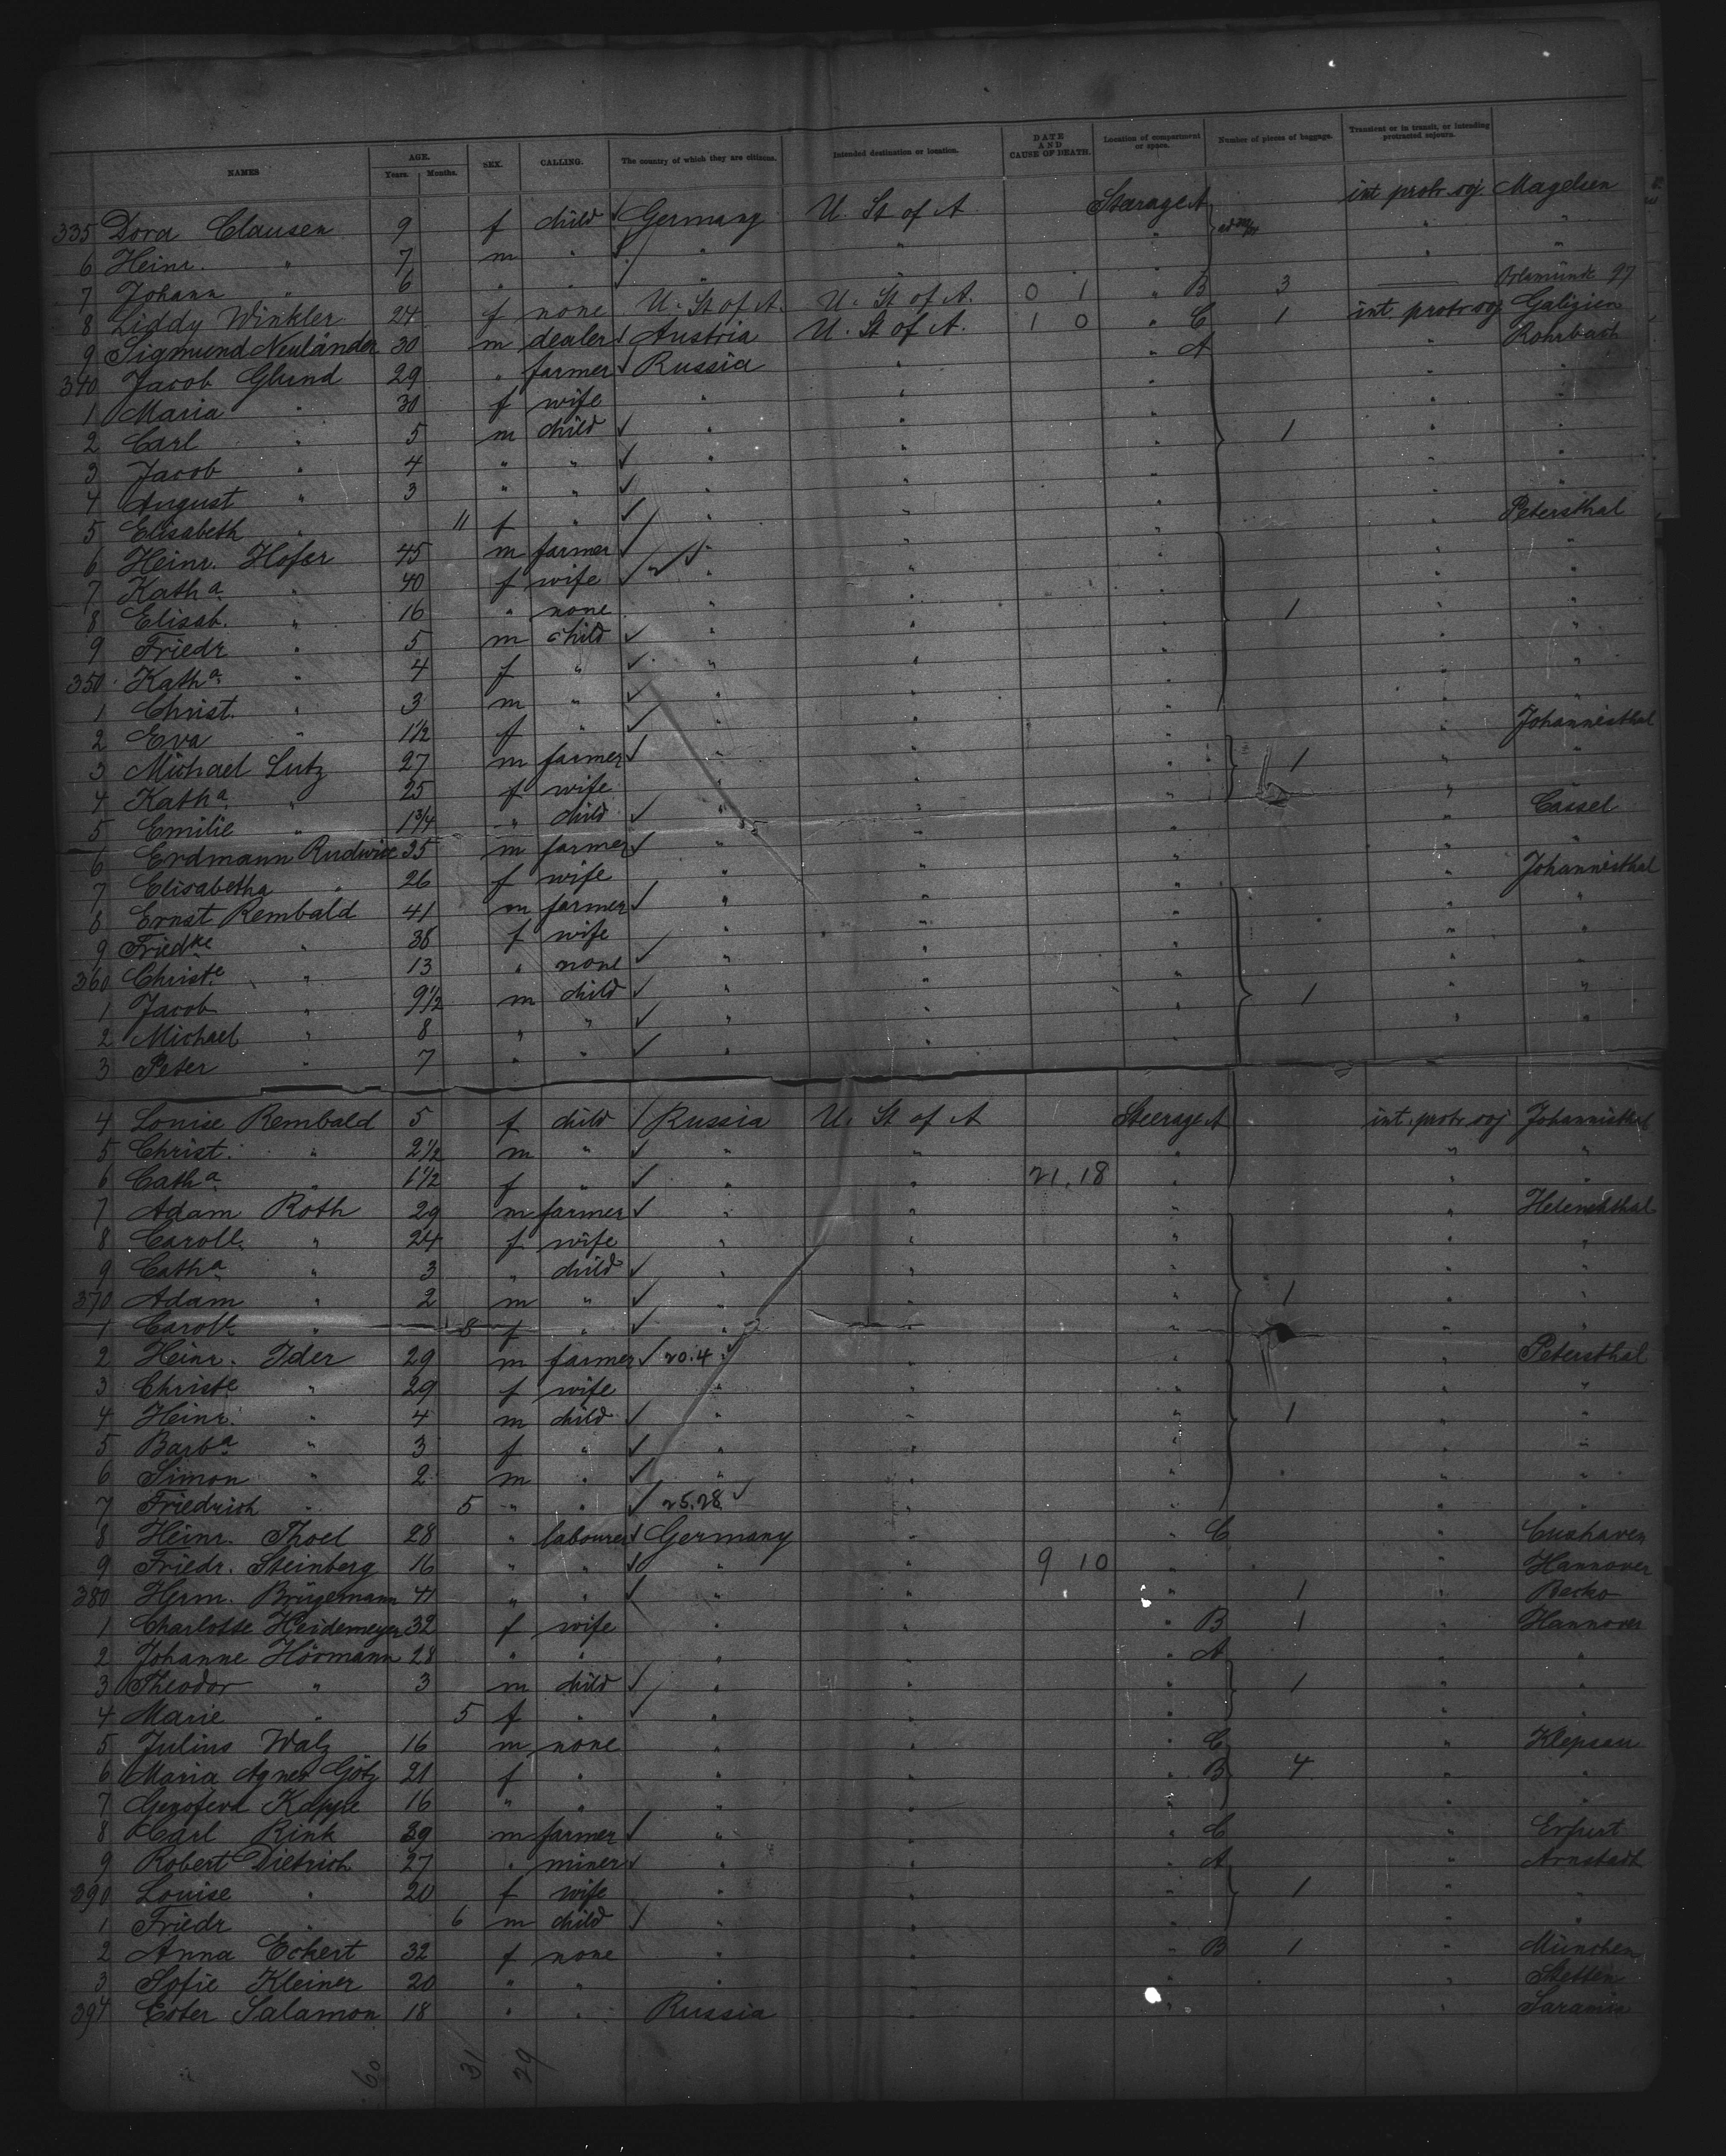 NAMES AGE. Years. Months. SEX. CALLING. The country of which they are citizens. Intended destination or location. DATE AND CAUSE OF DEATH. Location of compartment or space. Number of pieces of baggage. Transient or in transit, or intending protracted sojourn.
335 Dora Clausen 9 f child ✓ Germany U. St of A Steerage A int protr soj Magelsen
6 Heinr. " 7 m " ✓ " " " " "
7 Johann " 6 " " ✓ " " " " "
8 Liddy Winkler 24 f none U. St of A. U. St of A. 0 1 " B 3 —
9 Sigmund Neuländer 30 m dealer ✓ Austria U. St of A. 1 0 " C 1 int. protr soj Galizien
340 Jacob Glund 29 " farmer ✓ Russia " " A " Rohrbach
1 Maria " 30 f wife " " " " "
2 Carl " 5 m child ✓ " " " 1 " "
3 Jacob " 4 " " ✓ " " " " "
4 August " 3 " " ✓ " " " " "
5 Elisabeth " 11 f " ✓ " " " " "
6 Heinr. Hofer 45 m farmer ✓ " " " " Petersthal
7 Katha " 40 f wife ✓ " " " " "
8 Elisab. " 16 " none " " " 1 " "
9 Friedr " 5 m child ✓ " " " " "
350 Katha " 4 f " ✓ " " " " "
1 Christ. " 3 m " ✓ " " " " "
2 Eva " 1½ f " ✓ " " " " "
3 Michael Lutz 27 m farmer ✓ " " " 1 " Johannisthal
4 Katha " 25 f wife " " " " "
5 Emilie " 1¾ " child ✓ " " " " "
6 Erdmann 35 m farmer ✓ " " " " Cassel
7 Elisabetha " 26 f wife " " " " "
8 Ernst Rembald 41 m farmer ✓ " " " " Johannisthal
9 Friedke " 38 f wife " " " " "
360 Christe " 13 " none ✓ " " " " "
1 Jacob " 9½ m child ✓ " " " 1 " "
2 Michael " 8 " " ✓ " " " " "
3 Peter " 7 " " ✓ " " "
4 Louise Rembald 5 f child ✓ Russia U. St of A Steerage A int. protr soj Johannisthal
5 Christ. " 2½ m " ✓ " " " " "
6 Catha " 1½ f " ✓ " " 21.18 " " "
7 Adam Roth 29 m farmer ✓ " " " " Helenenthal
8 Caroll. " 24 f wife " " " " "
9 Catha " 3 " child ✓ " " " " "
370 Adam " 2 m " ✓ " " " 1 " "
1 Caroll " 8 f " ✓ " " " " "
2 Heinr. Ider 29 m farmer ✓ 20.4 ✓ " " " Petersthal
3 Christe " 29 f wife " " " " "
4 Heinr. " 4 m child ✓ " " " 1 " "
5 Barba " 3 f " ✓ " " " " "
6 Simon " 2 m " ✓ " " " " "
7 Friedrich " 5 " " ✓ 25.28 ✓ " " " "
8 Heinr. Thoel 28 " labourer ✓ Germany " " C " Cuxhaven
9 Friedr. Steinberg 16 " " ✓ " " 9 10 " " Hannover
380 Herm. Brügemann 41 " " ✓ " " " 1 "
1 Charlotte Heidemeyer 32 f wife " " " B 1 " Hannover
2 Johanne Hörmann 28 " " " " " A " "
3 Theodor " 3 m child ✓ " " " 1 " "
4 Marie " 5 f " ✓ " " " " "
5 Julius Walz 16 m none " " " C " Klepsau
6 Maria Agnes Götz 21 f " " " " B 4 " "
7 16 " " " " " " "
8 Carl Rink 39 m farmer ✓ " " " C " Erfurt
9 Robert Dietrich 27 " miner ✓ " " " A " Arnstadt
390 Louise " 20 f wife " " " 1 " "
1 Friedr " 6 m child ✓ " " " " "
2 Anna Eckert 32 f none " " " B 1 " München
3 Sofie Kleiner 20 " " " " " " Stetten
394 Ester Salamon 18 " " Russia " " "
60 31 29